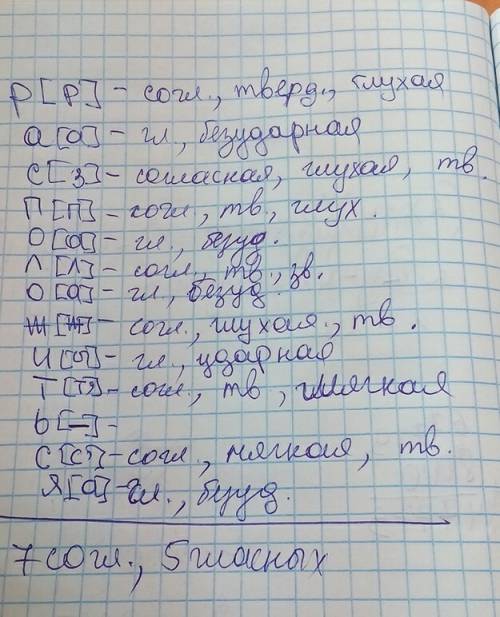 р [р] - согл., тверд., глухая
а [а] - гл, безударная
С [з] - согласная, глухая, тв.
П [п] - согл, тв, глух.
О [а] - гл., безуд.
Л [л] - согл., тв., зв.
О [а] - гл, безуд.
Ж [ж] - согл., глухая., тв.
И [ы] - гл., ударная
Т [] - согл., тв, мягкая
Ь [-] -
С [] - согл, мягкая, тв.
Я [а] - гл., безуд.
7 согл., 5 гласных